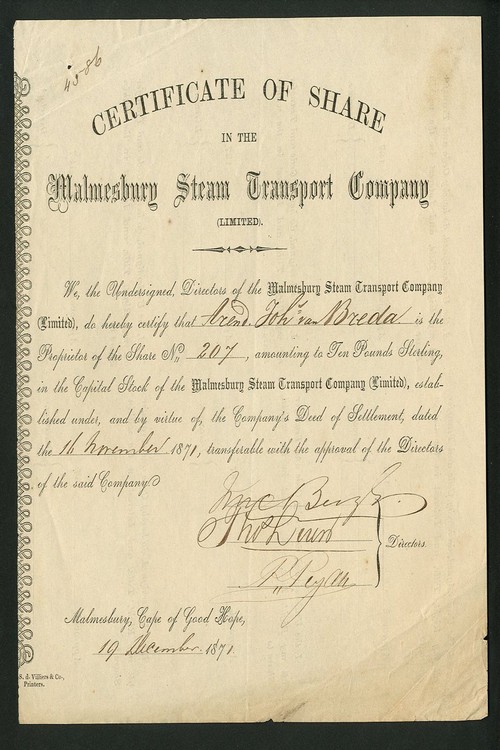 4586
CERTIFICATE OF SHARE
IN THE
Malmesbury Steam Transport Company
(LIMITED).
We, the Undersigned, Directors of the Malmesbury Steam Transport Company
(Limited), do hereby certify that Arend Johs van Breda is the
Proprietor of the Share No. 207, amounting to Ten Pounds Sterling,
in the Capital Stock of the Malmesbury Steam Transport Company (Limited), estab-
lished under, and by virtue of, the Company's Deed of Settlement, dated
the 16 November 1871, transferable with the approval of the Directors
of the said Company.
Directors.
Malmesbury, Cape of Good Hope,
19 December 1871.
S. d. Villiers & Co.,
Printers.